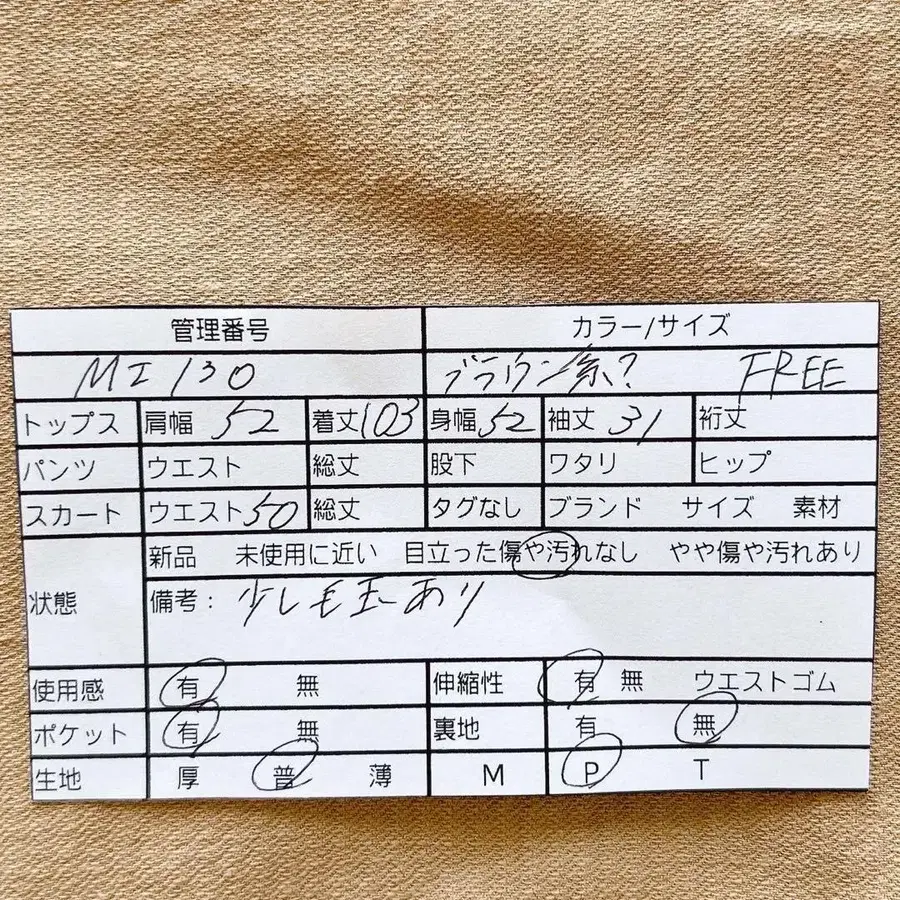 管理番号 カラー/サイズ
MI 130 ブラウン系? FREE
トップス 肩幅 52 着丈 103 身幅 52 袖丈 31 裄丈
パンツ ウエスト 総丈 股下 ワタリ ヒップ
スカート ウエスト 50 総丈 タグなし ブランド サイズ 素材
新品 未使用に近い 目立った傷や汚れなし やや傷や汚れあり
状態 備考: 少し毛玉あり
使用感 有 無 伸縮性 有 無 ウエストゴム
ポケット 有 無 裏地 有 無
生地 厚 普 薄 M P T